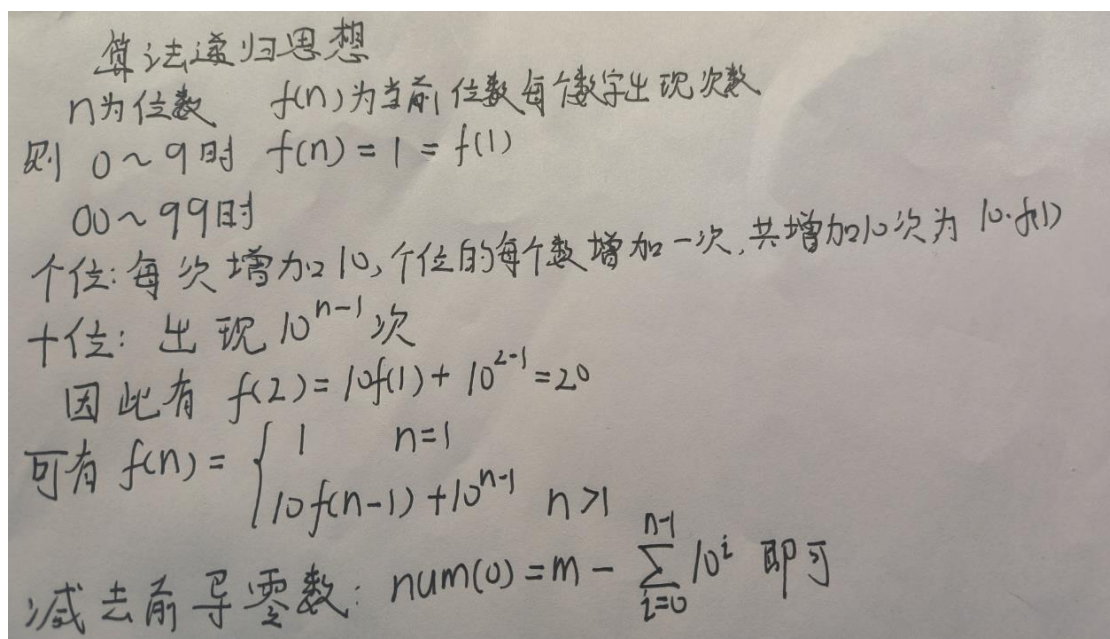 算法递归思想
n为位数 f(n)为当前位数每个数字出现次数
则 0～9时 f(n) = 1 = f(1)
00～99时
个位: 每次增加10, 个位的每个数增加一次, 共增加10次为 10·f(1)
十位: 出现 10^{n-1} 次
因此有 f(2) = 10f(1) + 10^{2-1} = 20
可有 f(n) = { 1 n=1
10f(n-1) + 10^{n-1} n>1
减去前导零数: num(0) = m - \sum_{i=0}^{n-1} 10^i 即可